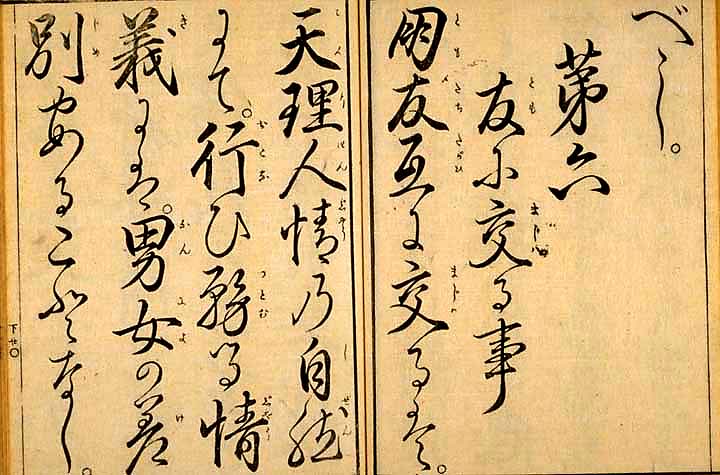 べし。
第六
友に交る事
朋友互に交るは。
天理人情の自然
にて。行ひ務る情
義には。男女の差
別あることなし。
下廿〇